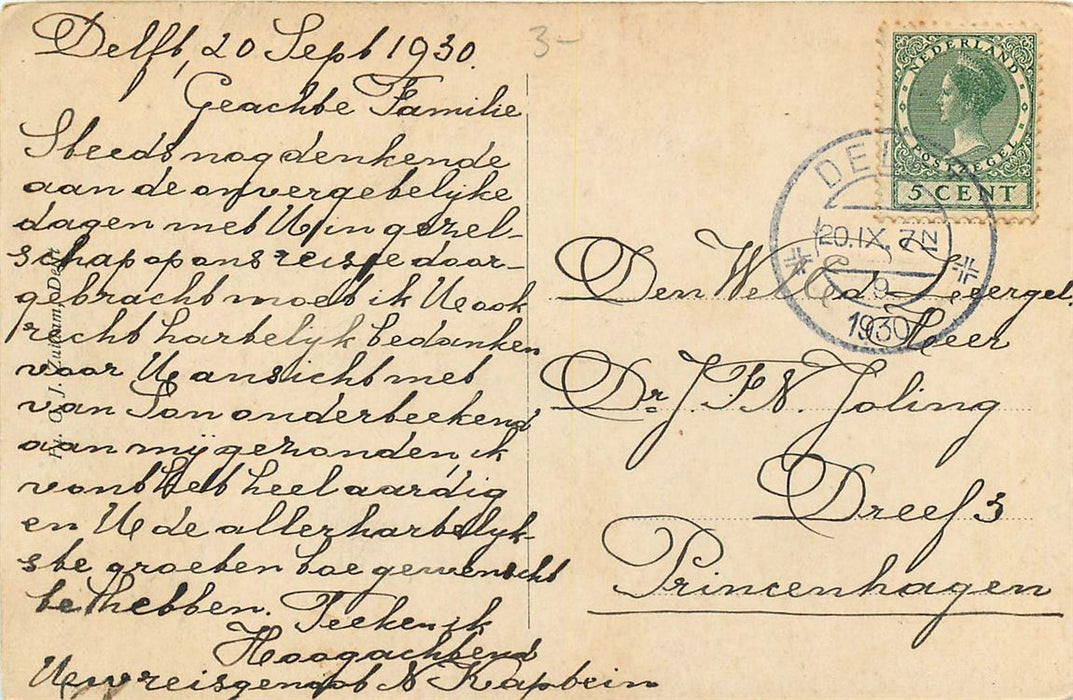 Delft, 20 Sept 1930.
3-
Geachte Familie
Steeds nog denkende
aan de onvergetelijke
dagen met U in gezel-
schap op ons reisje door-
gebracht moet ik U ook
recht hartelijk bedanken
voor Uw ansicht met
van Son onderteekend
aan mij gezonden, ik
vond het heel aardig
en U de allerhartelijk-
ste groeten toegewenscht
te hebben. Teeken ik
Hoogachtend
Uw reisgenoot N Kaptein
NEDERLAND
POSTZEGEL
5 CENT
DELFT
20.IX.
1930
Den Wel Ed Zeergel.
Heer
Dr. J. F. N. Joling
Dreef 3
Princenhagen